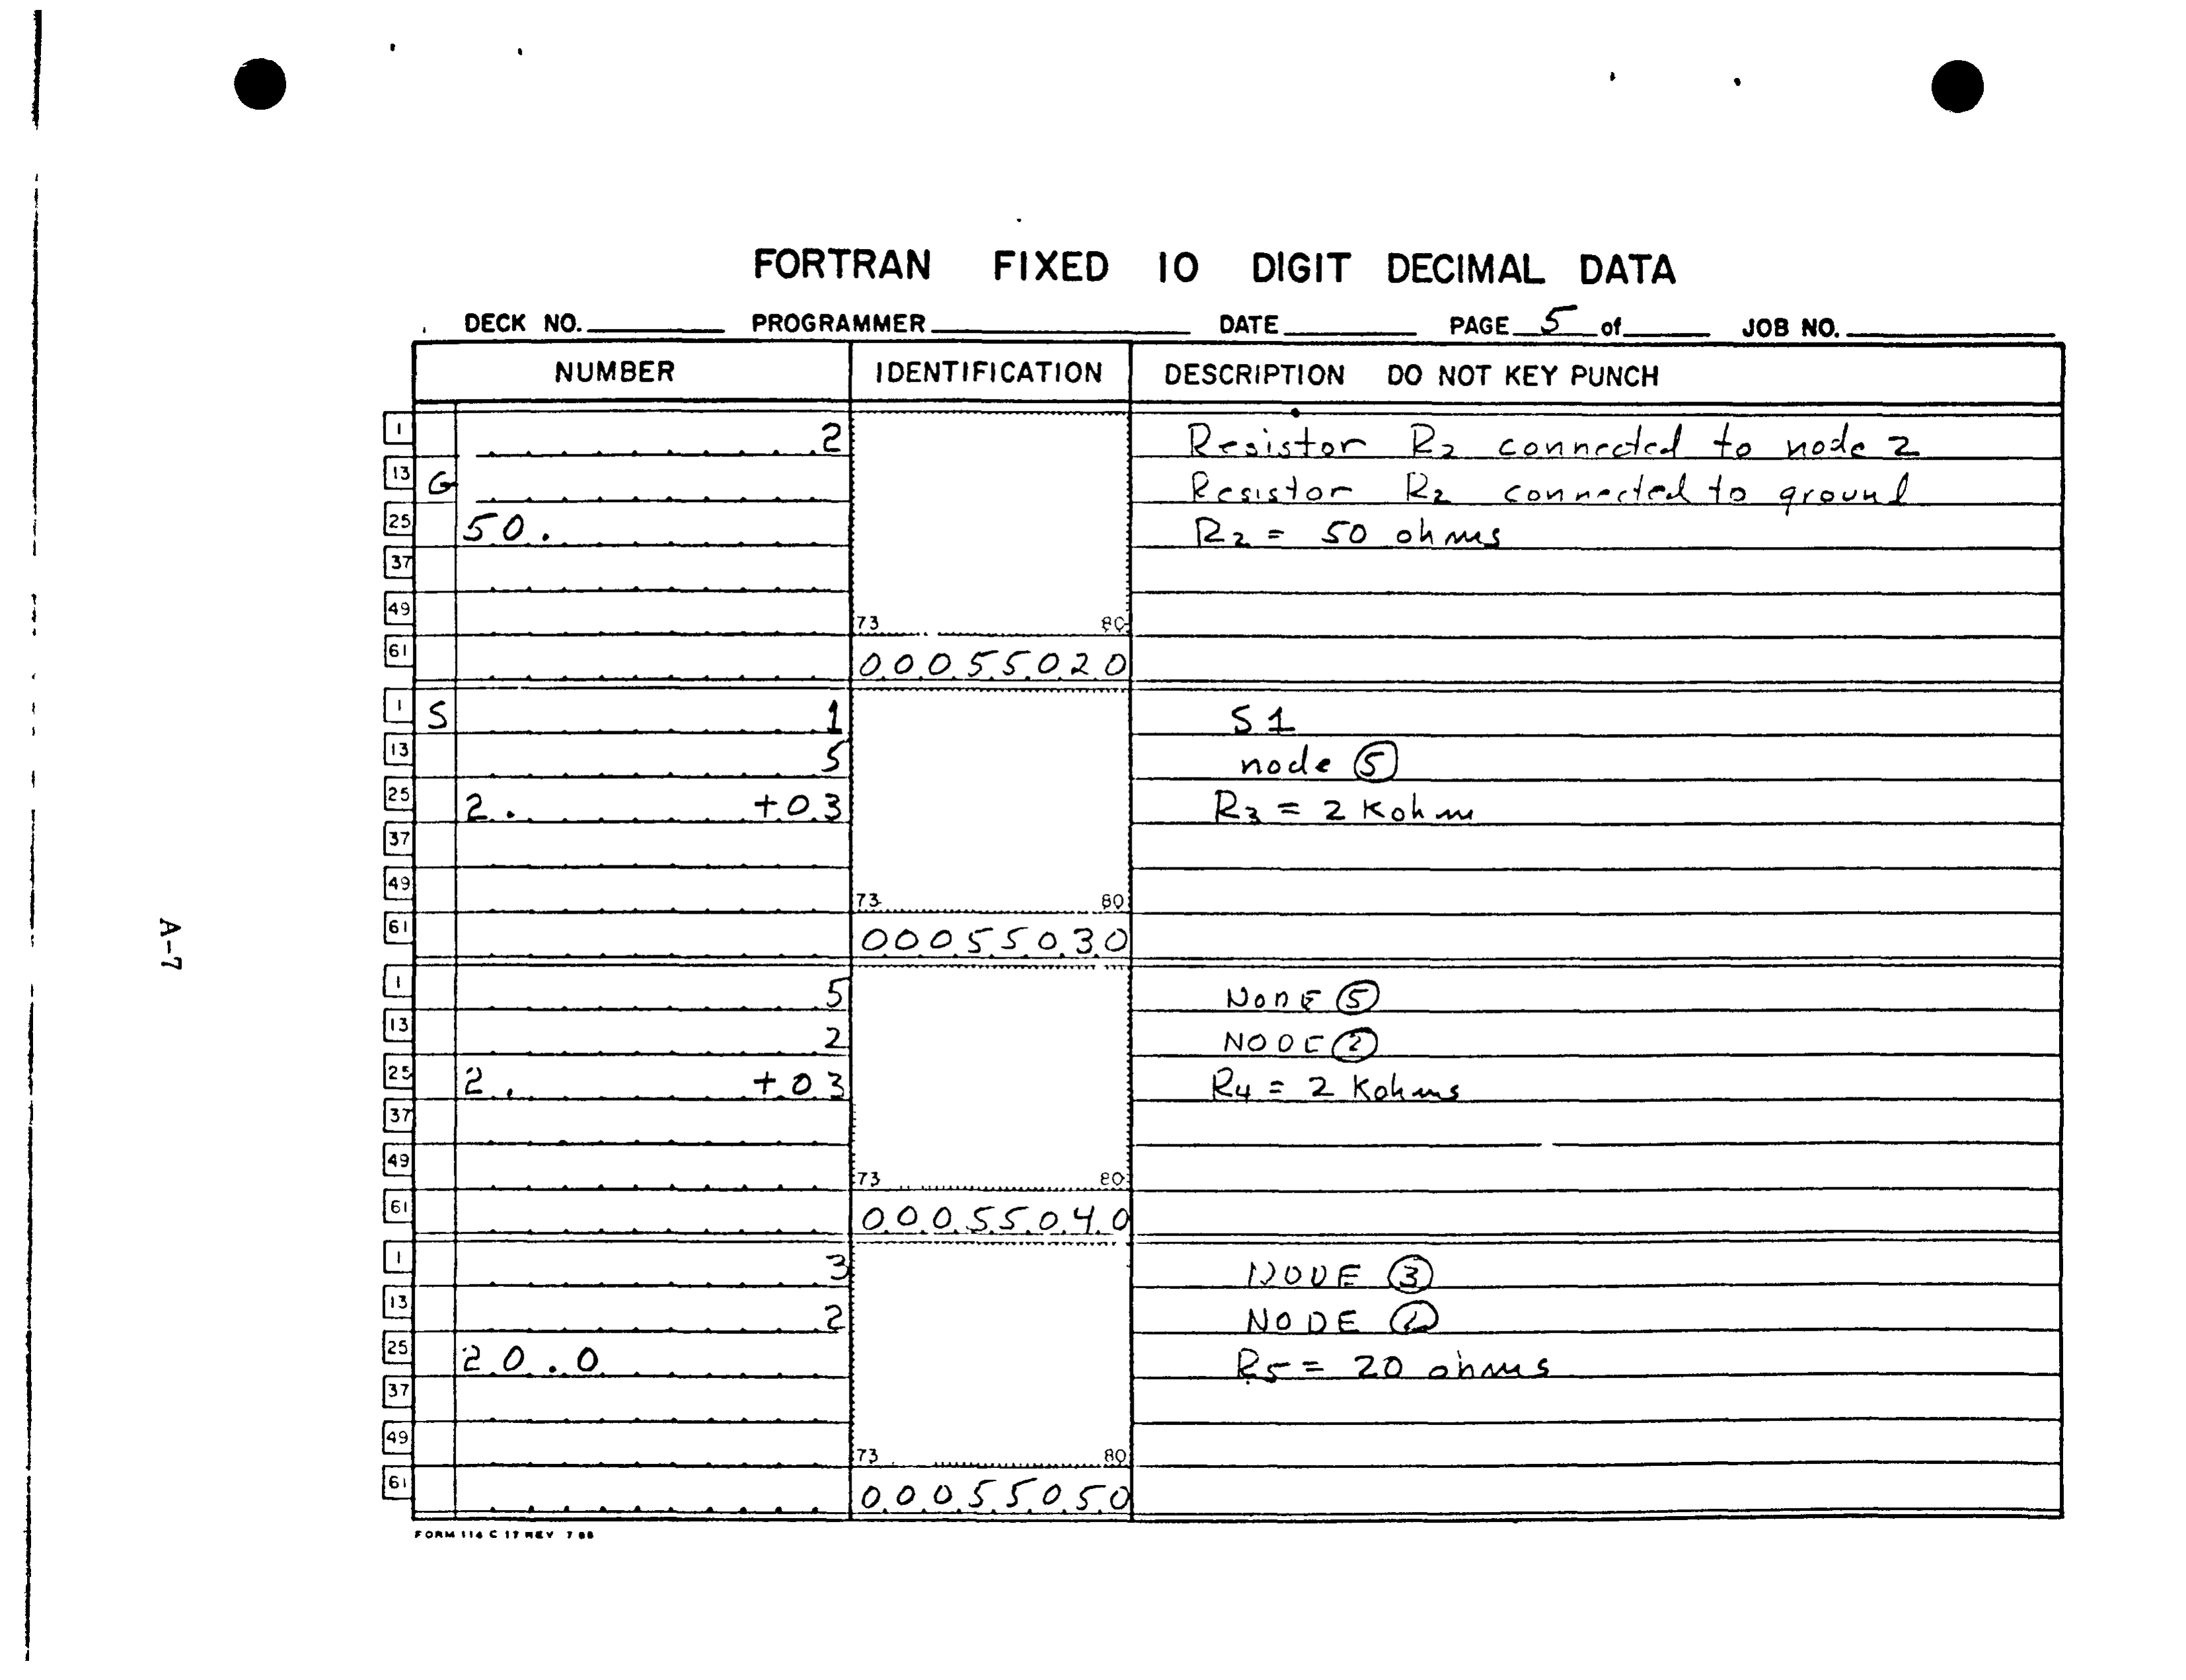 FORTRAN FIXED 10 DIGIT DECIMAL DATA
DECK NO. PROGRAMMER DATE PAGE 5 of JOB NO.
NUMBER IDENTIFICATION DESCRIPTION DO NOT KEY PUNCH
1 2 Resistor R2 connected to node 2
13 G Resistor R2 connected to ground
25 50. R2 = 50 ohms
37
49 73 80
61 00055020
1 S 1 S1
13 5 node 5
25 2. +03 R3 = 2 Kohm
37
49 73 80
61 00055030
1 5 NODE 5
13 2 NODE 2
25 2. +03 R4 = 2 Kohms
37
49 73 80
61 00055040
1 3 NODE 3
13 2 NODE 2
25 20.0 R5 = 20 ohms
37
49 73 80
61 00055050
FORM 114 C 17 REV
A-7